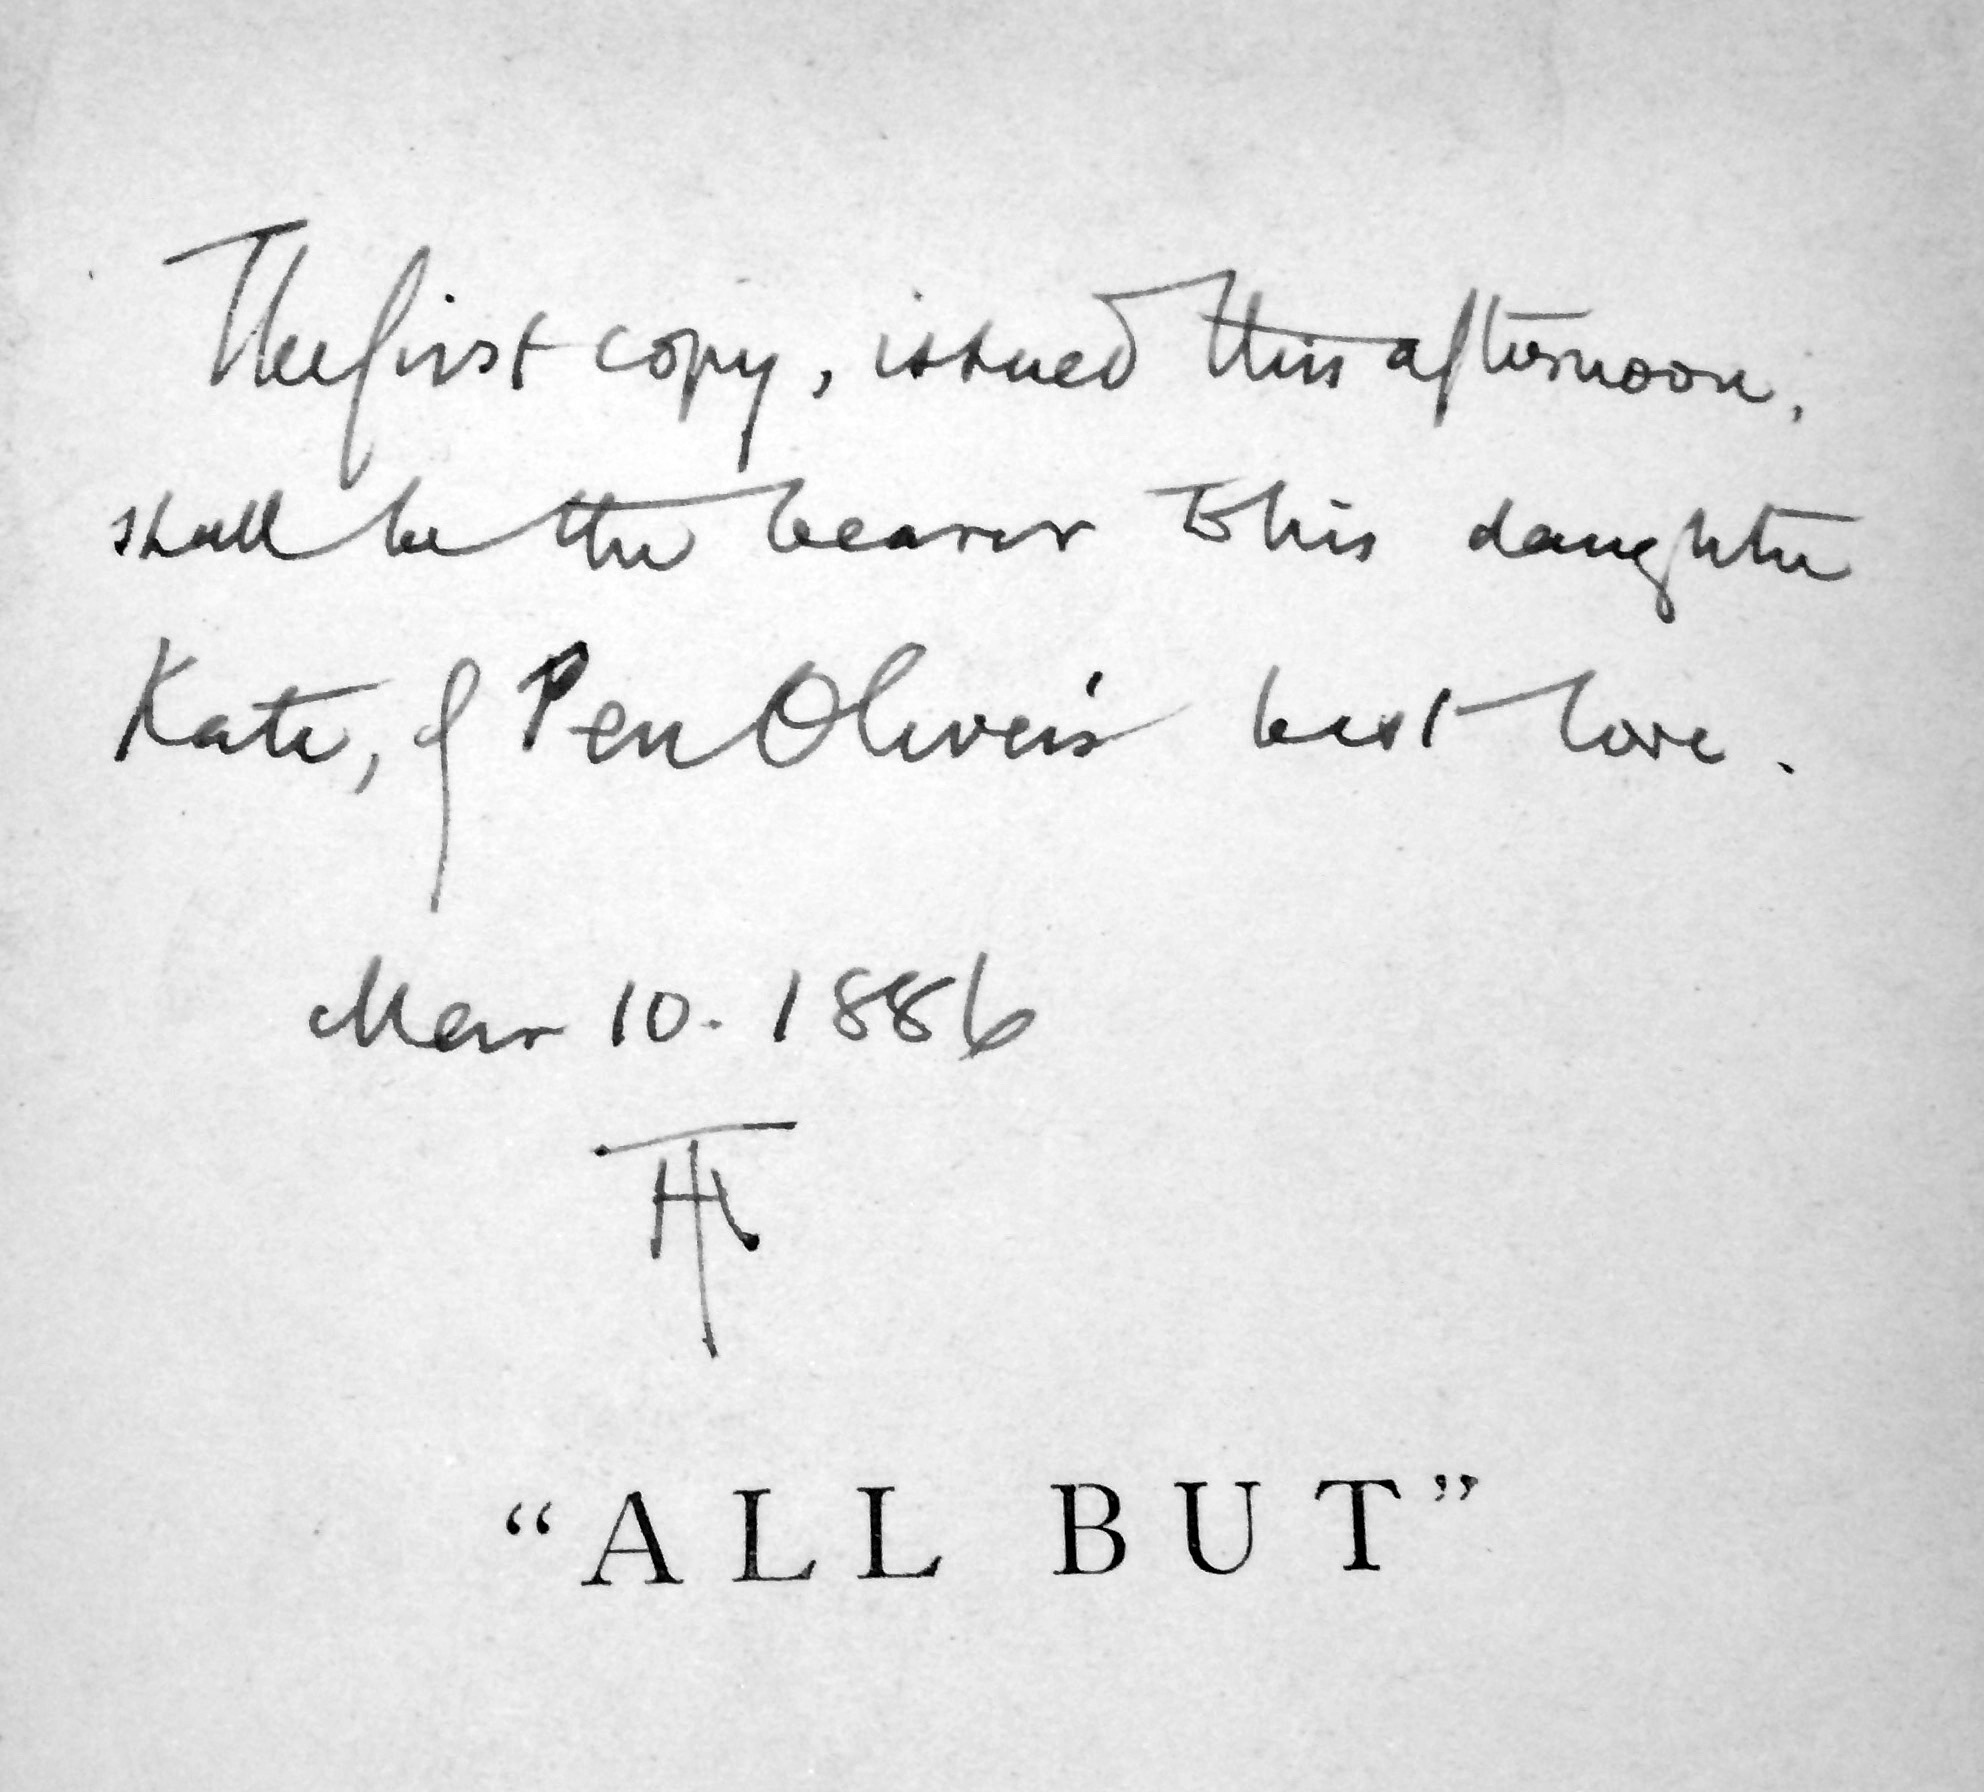 The first copy, issued this afternoon,
shall be the bearer to his daughter
Kate, of Pen Oliver's best love.
Mar 10. 1886
HT
"ALL BUT"